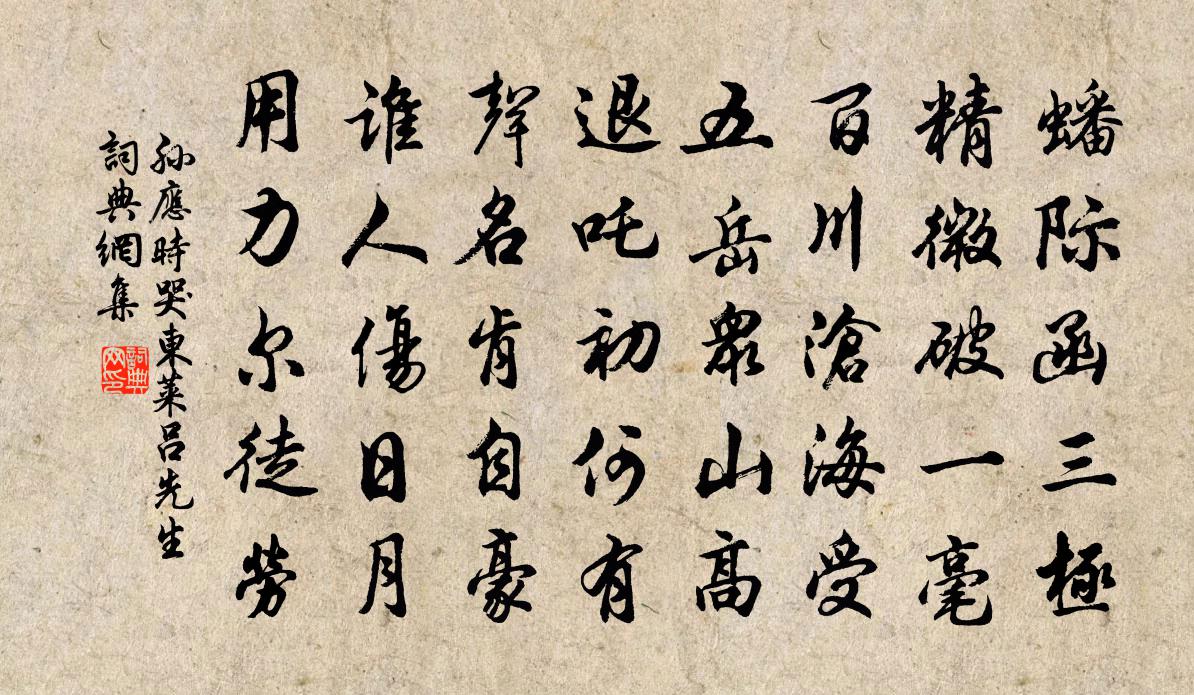 蟠際函三極
精微破一毫
百川滄海受
五岳眾山高
退吒初何有
聲名肯自豪
誰人傷日月
用力尔徒勞
孙應時哭東萊呂先生
詞典網集
詞典
网印